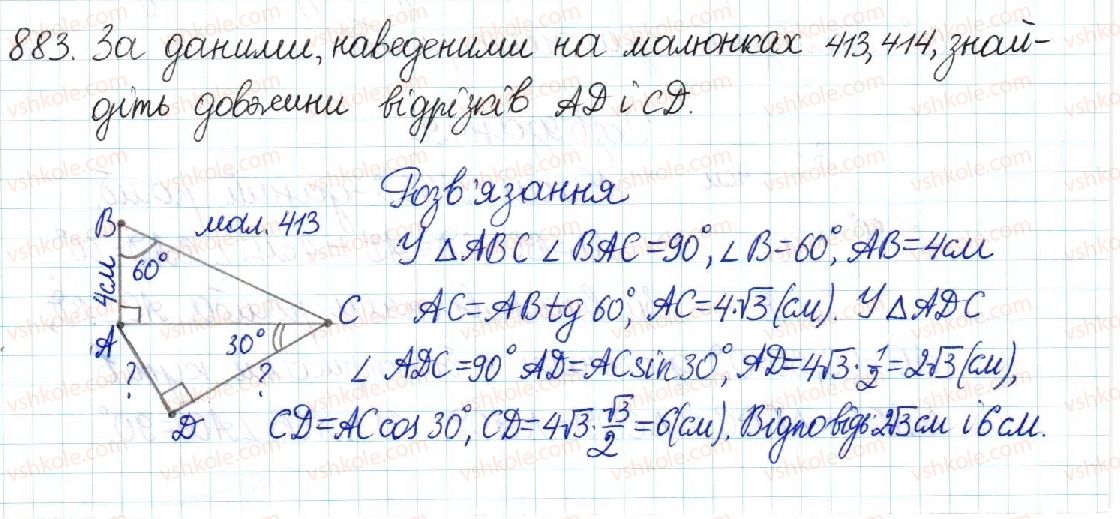 883. За даними, наведеними на малюнках 413, 414, знай-
діть довжини відрізків AD і CD.
Розв'язання
мал. 413
B
60°
4см
A
C
30°
?
?
D
У △ABC ∠BAC=90°, ∠B=60°, AB=4см
AC=AB tg 60°, AC=4·√3 (см). У △ADC
∠ADC=90° AD=AC sin 30°, AD=4√3·1/2=2√3 (см),
CD=AC cos 30°, CD=4√3·√3/2=6(см). Відповідь: 2√3 см і 6 см.
vshkole.com